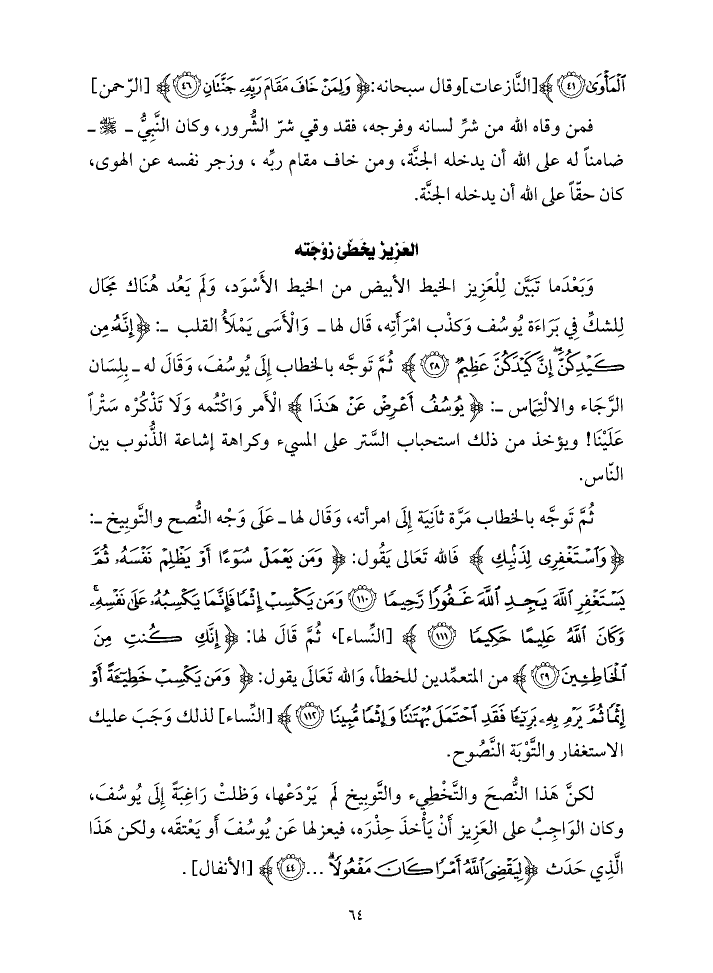 ٱلۡمَأۡوَىٰ ﴿٤١﴾ [النَّازعات] وقال سبحانه: ﴿وَلِمَنۡ خَافَ مَقَامَ رَبِّهِۦ جَنَّتَانِ ﴿٤٦﴾﴾ [الرّحمن]
فمن وقاه الله من شرِّ لسانه وفرجه، فقد وقي شرّ الشُّرور، وكان النَّبِيُّ ـ ﷺ ـ
ضامناً له على الله أن يدخله الجنَّة، ومن خاف مقام ربِّه ، وزجر نفسه عن الهوى،
كان حقّاً على الله أن يدخله الجنَّة.
العزيز يخطئ زوجته
وَبَعْدَما تَبَيَّن لِلْعَزيز الخيط الأبيض من الخيط الأسْوَد، وَلَم يَعُد هُنَاك مَجَال
لِلشكِّ فِي بَرَاءَة يُوسُف وَكذْب امْرَأَتِه، قَال لها ـ وَالْأَسَى يَمْلَأُ القلب ـ: ﴿إِنَّهُۥ مِن
كَيۡدِكُنَّۖ إِنَّ كَيۡدَكُنَّ عَظِيمٞ ﴿٢٨﴾﴾ ثُمَّ تَوجَّه بالخطاب إِلَى يُوسُفَ، وَقَالَ له ـ بِلِسَان
الرَّجَاء والالْتِمَاس ـ: ﴿يُوسُفُ أَعۡرِضۡ عَنۡ هَٰذَا﴾ الأمر وَاكْتُمه وَلَا تَذْكُرْه سَتْراً
عَلَيْنَا! ويؤخذ من ذلك استحباب السَّتر على المسيء وكراهة إشاعة الذُّنوب بين
النّاس.
ثُمَّ تَوجَّه بالخطاب مَرَّة ثَانِيَة إِلَى امرأته، وَقَال لها ـ عَلَى وَجْه النُّصح والتَّوبيخ ـ:
﴿وَٱسۡتَغۡفِرِي لِذَنۢبِكِ﴾ فَالله تَعَالى يَقُول: ﴿وَمَن يَعۡمَلۡ سُوٓءًا أَوۡ يَظۡلِمۡ نَفۡسَهُۥ ثُمَّ
يَسۡتَغۡفِرِ ٱللَّهَ يَجِدِ ٱللَّهَ غَفُورٗا رَّحِيمٗا ﴿١١٠﴾ وَمَن يَكۡسِبۡ إِثۡمٗا فَإِنَّمَا يَكۡسِبُهُۥ عَلَىٰ نَفۡسِهِۦۚ
وَكَانَ ٱللَّهُ عَلِيمًا حَكِيمٗا ﴿١١١﴾﴾ [النِّساء]، ثُمَّ قَالَ لهَا: ﴿إِنَّكِ كُنتِ مِنَ
ٱلۡخَاطِـِٔينَ ﴿٢٩﴾﴾ من المتعمِّدين للخطأ، وَالله تَعَالَى يقول: ﴿وَمَن يَكۡسِبۡ خَطِيٓـَٔةً أَوۡ
إِثۡمٗا ثُمَّ يَرۡمِ بِهِۦ بَرِيٓـٔٗا فَقَدِ ٱحۡتَمَلَ بُهۡتَٰنٗا وَإِثۡمٗا مُّبِينٗا ﴿١١٢﴾﴾ [النِّساء] لذلك وَجَبَ عليك
الاستغفار والتَّوْبَة النَّصُوح.
لكنَّ هَذَا النُّصحَ والتَّخْطِيء والتَّوبيخ لَم يَرْدَعْها، وَظلتْ رَاغِبَةً إِلَى يُوسُفَ،
وكان الوَاجِبُ على العَزيز أَنْ يَأْخذَ حِذْرَه، فيعزلها عَن يُوسُفَ أَو يَعْتقَه، ولكن هَذَا
الَّذِي حَدَث ﴿لِيَقۡضِيَ ٱللَّهُ أَمۡرٗا كَانَ مَفۡعُولٗاۗ ...﴿٤٤﴾﴾ [الأنفال] .
٦٤